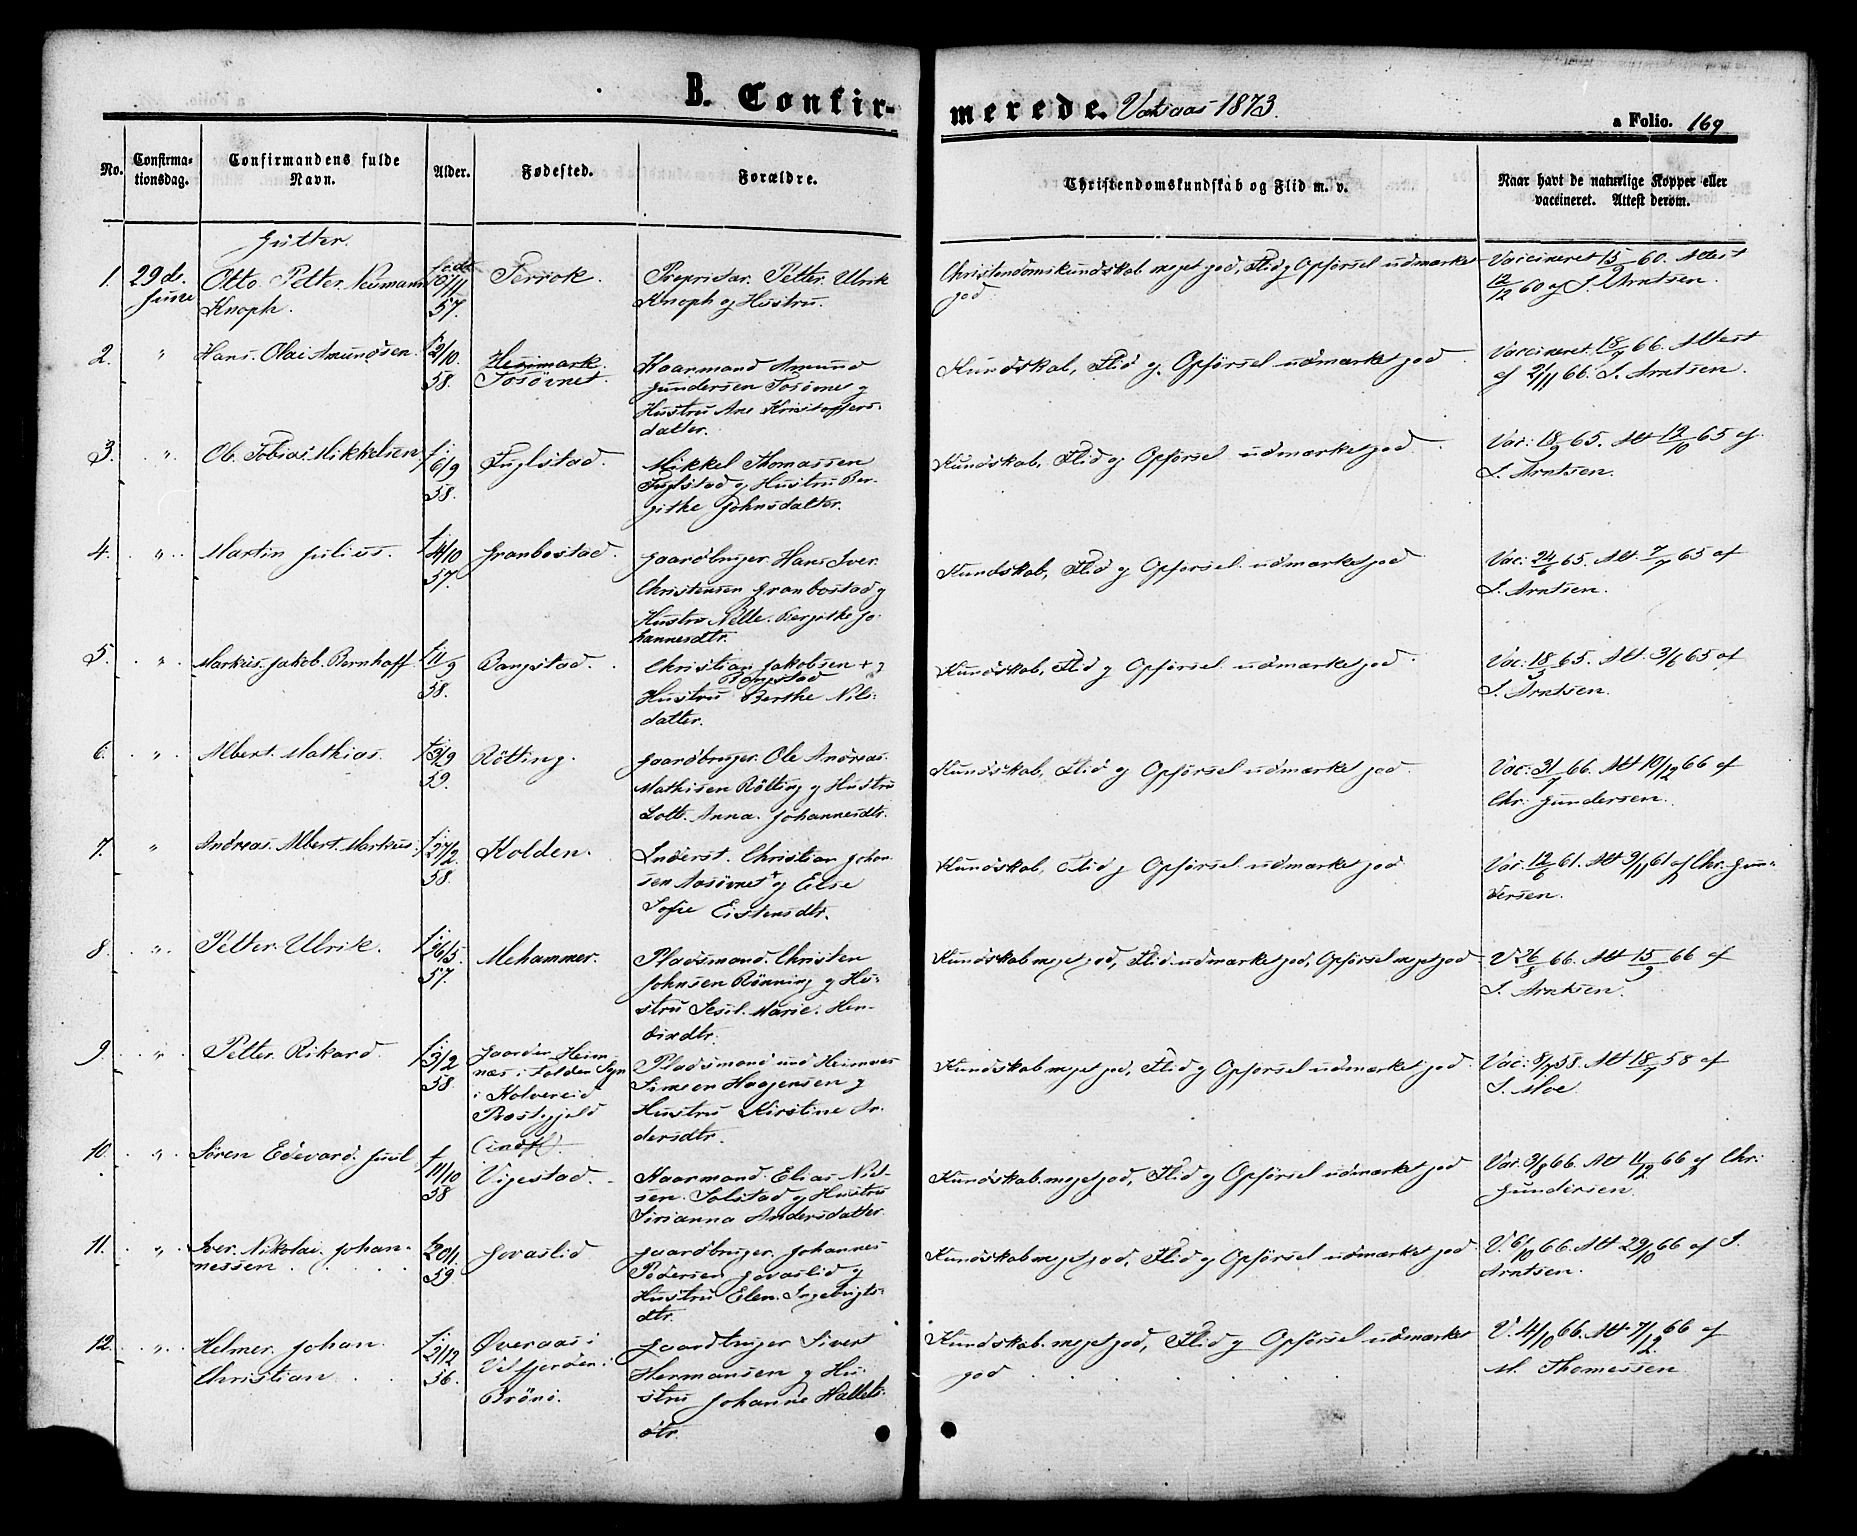 B. Confirmerede. Vatsaas 1873.
a Folio. 169
No.
Confirmationsdag.
Confirmandens fulde Navn.
Alder.
Fødested.
Forældre.
Christendomskundskab og Flid m. v.
Naar havt de naturlige Kopper eller vaccineret. Attest derom.
Gutter.
1. 29de Juni Otto Petter Neumann Knoph. født 10/11 57. Terrok. Proprietær Petter Ulrik Knoph og Hustru. Christendomskundskab meget god, Flid og Opførsel udmærket god. Vaccineret 15/9 60. Attest 12/12 60 af S. Arntsen.
2. " Hans Olai Amundsen. f. 2/10 58. Tosøvnet. Kaarmand Amund Gundersen Tosøvnet og Hustru Ane Kristoffersdatter. Kundskab, Flid og Opførsel udmærket god. Vaccineret 18/9 66. Attest af 2/11 66. S. Arntsen.
3. " Ob. Tobias Mikkelsen f. 6/9 58. Fuglstad. Mikkel Thomassen Fuglstad og Hustru Bergithe Johnsdatter. Kundskab, Flid og Opførsel udmærket god. Vac: 18/9 65. Att 12/10 65 af S. Arntsen.
4. " Martin Julius. f. 4/10 57. Granbostad. Gaardbruger Hans Iver Christensen Granbostad og Hustru Nelle Bergithe Johannesdtr. Kundskab, Flid og Opførsel udmærket god Vac: 24/6 65. Att. 7/7 65 af S. Arntsen.
5. " Markus Jakob Bernhoff. f. 11/9 58. Bangstad. Christian Jakobsen + Bangstad og Hustru Berthe Nilsdatter. Kundskab, Flid og Opførsel udmærket god. Vac: 18/5 65. Att. 3/6 65 af S. Arntsen.
6. " Albert Mathias. f. 3/9 59. Røtting. Gaardbruger Ole Andreas Mathisen Røtting og Hustru Lotte Anna Johannesdtr. Kundskab, Flid og Opførsel udmærket god. Vac: 31/7 66. Att 10/12 66 af Chr. Gundersen.
7. " Andreas Albert Markus. f. 27/2 58. Kolden. Inderst Christian Johansen Aasøvnet + og Else Sofie Eistensdtr. Kundskab, Flid og Opførsel udmærket god Vac. 12/6 61. Att 9/11 61 af Chr. Gundersen.
8. " Petter Ulrik. f. 26/5 57. Mehammer. Pladsmand Christen Johnsen Rønning og Hustru Sesil Marie Hendixdtr. Kundskab meget god, Flid udmærket god, Opførsel meget god V. 26/8 66. Att 15/9 66 af S. Arntsen.
9. " Petter Rikard. f. 3/2 58. Gaarden Heimnæs i Folden Sogn i Kolvereid Præstegjeld (indfl). Pladsmand und Heimnæs Simeon Haagensen og Hustru Kirstine Andersdtr. Kundskab meget god, Flid og Opførsel udmærket god. Vac: 8/7 58. Att 18/7 58 af S. Moe.
10. " Søren Edevard Juul f 11/10 58 Vigestad. Kaarmand Elias Nielsen Solstad og Hustru Sirianna Andersdatter. Kundskab meget god, Flid og Opførsel udmærket god Vac. 3/8 66. Att 11/12 66 af Chr. Gundersen.
11. " Iver Nikolai Johannessen. f. 20/1 59. Gvaslid Gaardbruger Johannes Pedersen Gvaslid og Hustru Elen Ingebrigtsdtr. Kundskab meget god, Flid og Opførsel udmærket god. V. 6/10 66. Att 29/10 66 af S. Arntsen.
12. " Helmer Johan Christian. f. 21/12 56. Øveraas i Velfjorden i Brønø. Gaardbruger Sivert Hermansen og Hustru Johanne Halletsdtr. Kundskab meget god, Flid og Opførsel udmærket god V. 4/10 66. Att 7/12 66 af M. Thomessen.